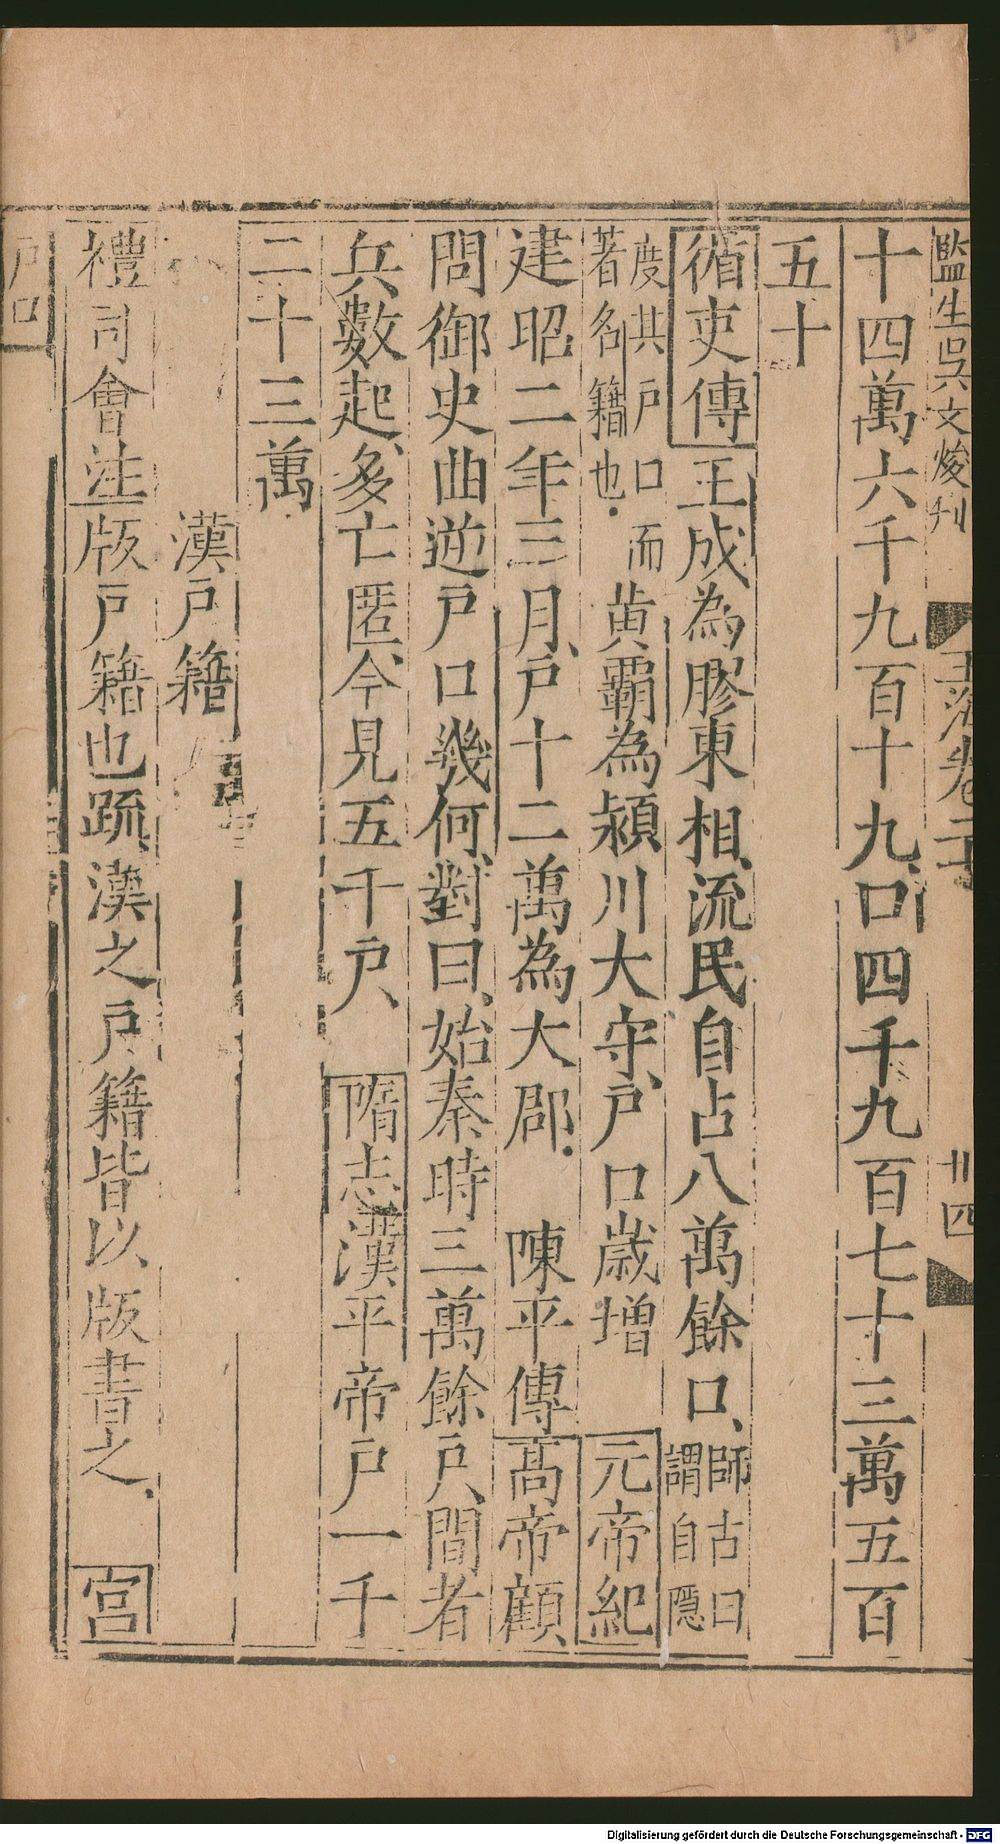 監生吳文焌刊 玉海卷二十 廿四
十四萬六千九百十九口四千九百七十三萬五百
五十
循吏傳王成為膠東相、流民自占八萬餘口、師古曰謂自隱
度其戶口而著名籍也.黄霸為潁川大守、戶口歲增 元帝紀
建昭二年三月、戶十二萬為大郡. 陳平傳高帝顧
問御史曲逆戶口幾何、對曰、始秦時三萬餘戶、間者
兵數起、多亡匿、今見五千戶、 隋志漢平帝戶一千
二十三萬.
漢戶籍
禮司會注版戶籍也疏、漢之戶籍皆以版書之. 宫
戶口
Digitalisierung gefördert durch die Deutsche Forschungsgemeinschaft - DFG